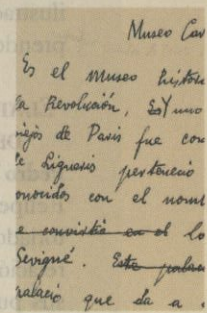 Museo Car
Es el museo histori
la Revolución, Es Y uno
viejos de Paris fue con
de Lignaris perteneció
onocidos con el nomb
e convirtió en el lo
Sevigné. Este palac
palacio que da a